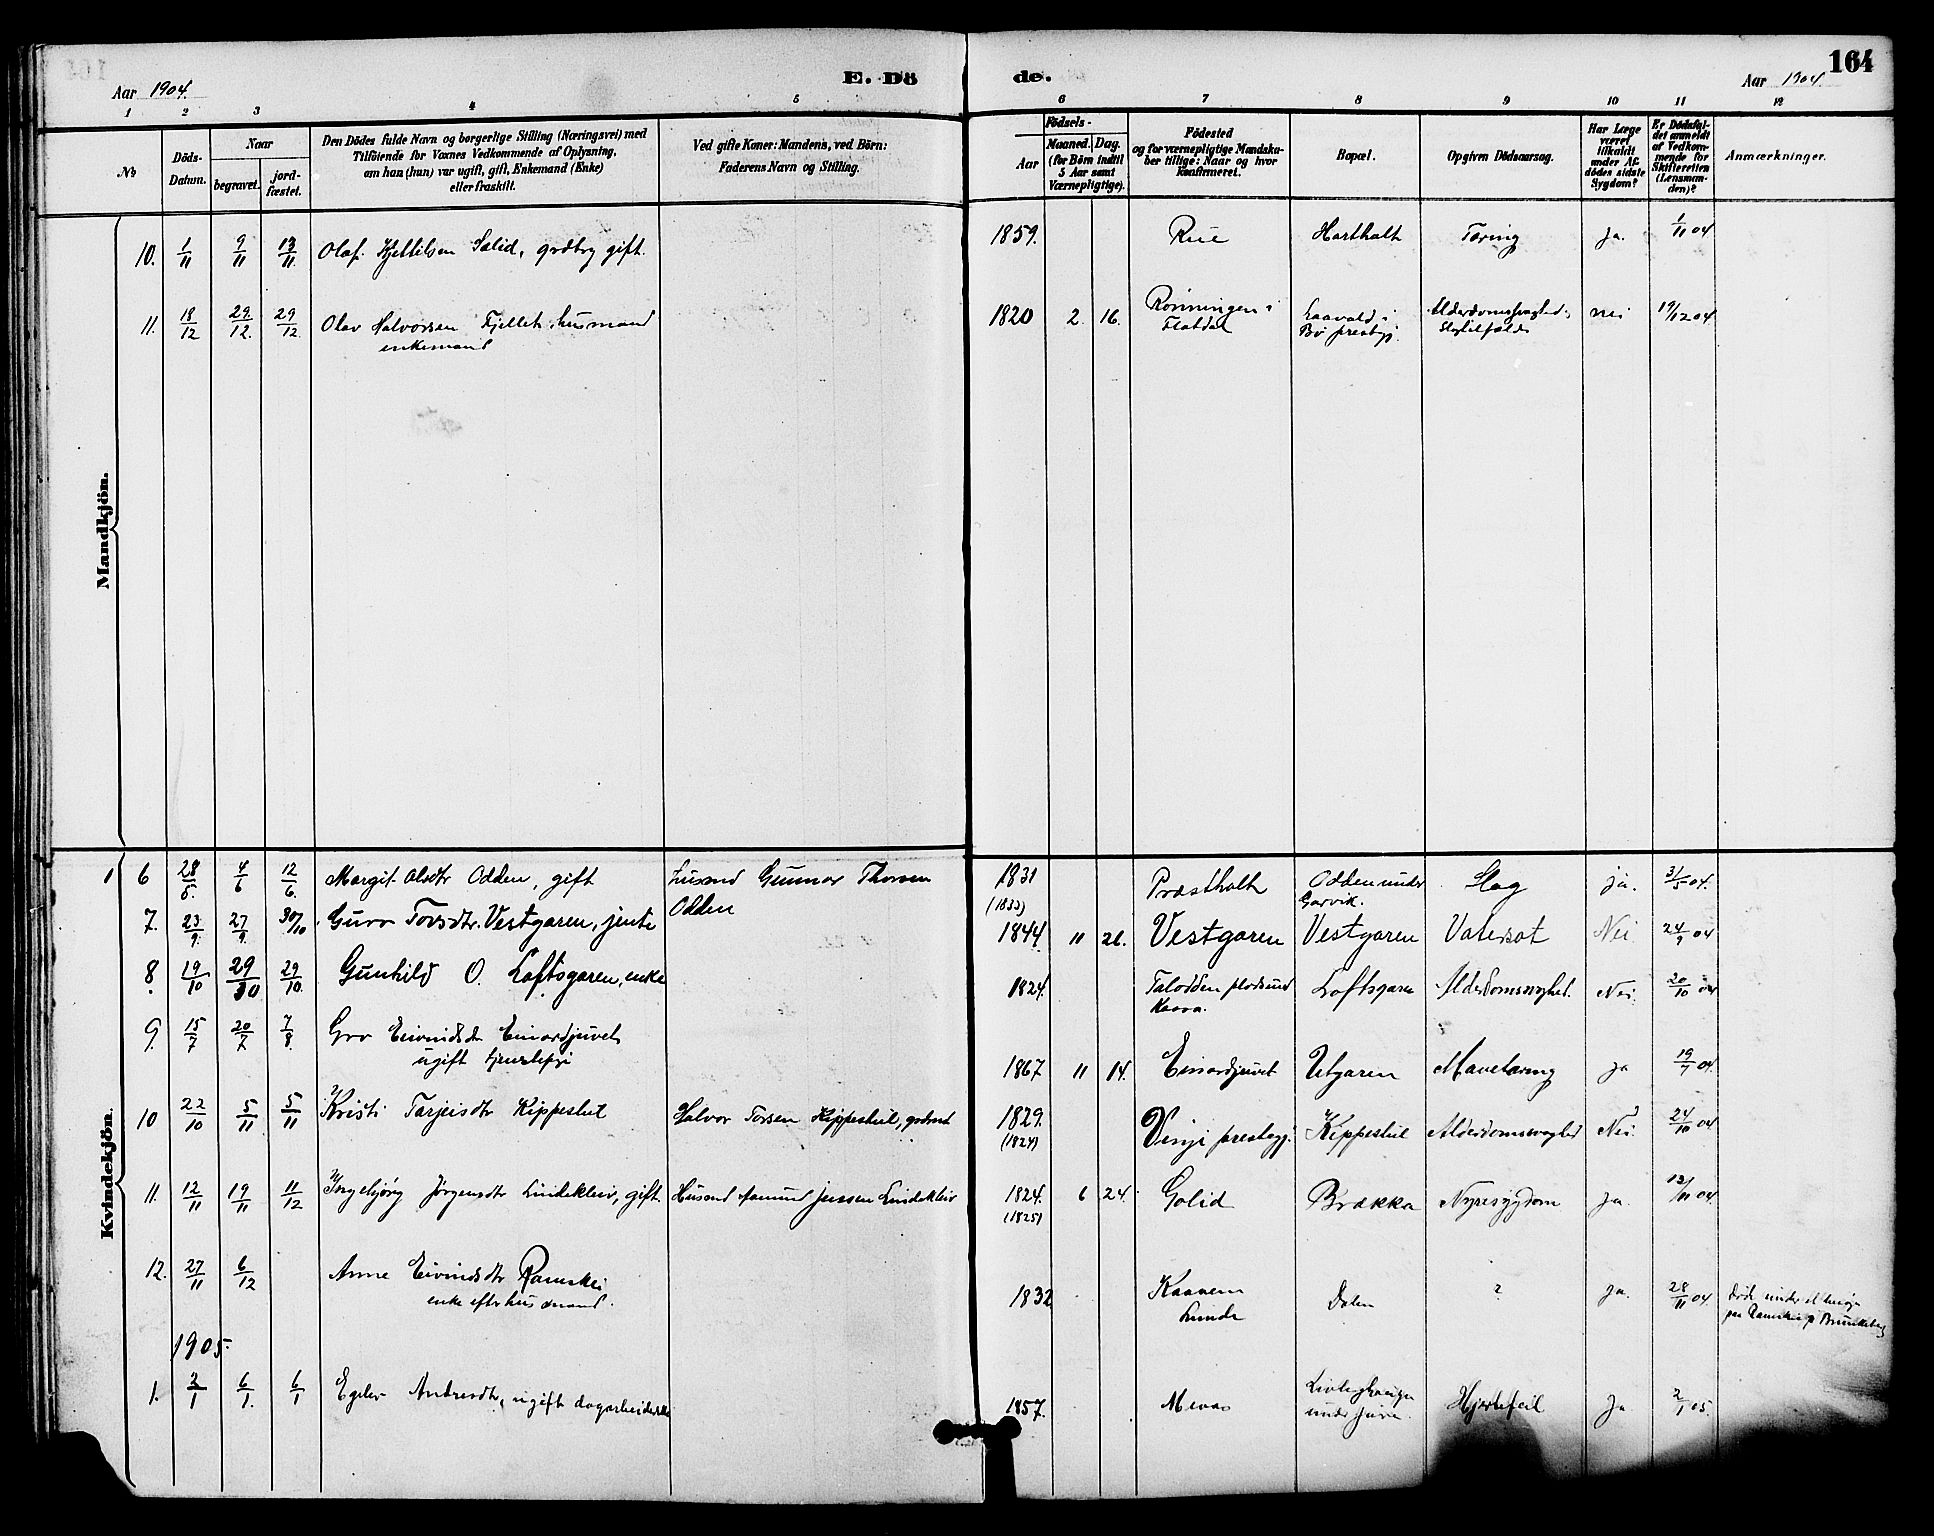 164
Aar 1904.
E. Dö
de.
Aar 1904.
1 2 3 4 5 6 7 8 9 10 11 12
№
Döds-
Datum.
Naar
begravet.
jord-
fæstet.
Den Dödes fulde Navn og borgerlige Stilling (Næringsvei) med
Tilföiende for Voxnes Vedkommende af Oplysning,
om han (hun) var ugift, gift, Enkemand (Enke)
eller fraskilt.
Ved gifte Koner: Mandens, ved Börn:
Faderens Navn og Stilling.
Födsels-
Aar
Maaned. Dag.
(for Börn indtil
5 Aar samt
Værnepligtige).
Födested
og for værnepligtige Mandska-
ber tillige: Naar og hvor
Konfirmeret.
Bopæl.
Opgiven Dödsaarsag.
Har Læge
været
tilkaldt
under Af-
dödes sidste
Sygdom?
Er Dödsfal-
det anmeldt
af Vedkom-
mende for
Skifteretten
(Lensman-
den)?
Anmærkninger.
Mandkjön.
10. 1/11 9/11 13/11 Olaf Kjettilsen Salid, grdbrg gift. 1859. Rue Hartholt Tæring ja. 1/11 04
11. 18/12 29/12. 29/12. Olav Halvorsen Fjellet, husmand
enkemand
1820 2. 16. Rønningen i
Flatdal
Laavald i
Bø prestgj.
Alderdomssvaghed,
Slagtilfælde
nei 19/12 04
Kvindekjön.
6 28/5. 4/6 12/6. Margit Olsdtr Odden, gift Husmd Gunnar Thorsen
Odden
1831
(1833)
Præstholt Odden under
Garvik.
Slag ja. 31/5 04.
7. 23/9. 27/9. 30/10. Guro Tovsdtr. Vestgaren, jente 1844. 11 26. Vestgaren Vestgaren Vatersot Nei 24/9 04
8. 19/10 29/30 29/10. Gunhild O. Loftsgaren, enke 1824. Talodden
Loftsgare Alderdomsvaghed. Nei. 20/10 04
9. 15/7 20/7 7/8. Gro Eivindsdtr Einardjuvet
ugift
1867 11 14. Einardjuvet Utgaren Mavetæring ja 19/7 04.
10 22/10 5/11 5/11 Kristi Tarjeisdtr Kippeslut Halvor Torsen Kippeshul, 1829.
(1824)
Vinje prestegj. Kippeshul Alderdomsvaghed Nei. 24/10 04
11. 12/11 19/11 11/12 Ingebjørg Jørgensdtr Lindekleiv, gift Husmd Aamund Jenssen Lindekleiv 1824.
(1825)
6 24. Golid Brækka Nyresygdom ja. 12/11 04
12. 27/11 6/12 Anne Eivindsdtr Ramskei
enke efter husmand.
1832 Kaaven
Lunde
Dalen ? ja. 28/11 04. døde under et
1905.
1. 2/1 6/1. 6/1 Egelev Andresdtr, ugift dagarbeiderske 1857. Mevas
under
Hjertefeil Ja 2/1 05.